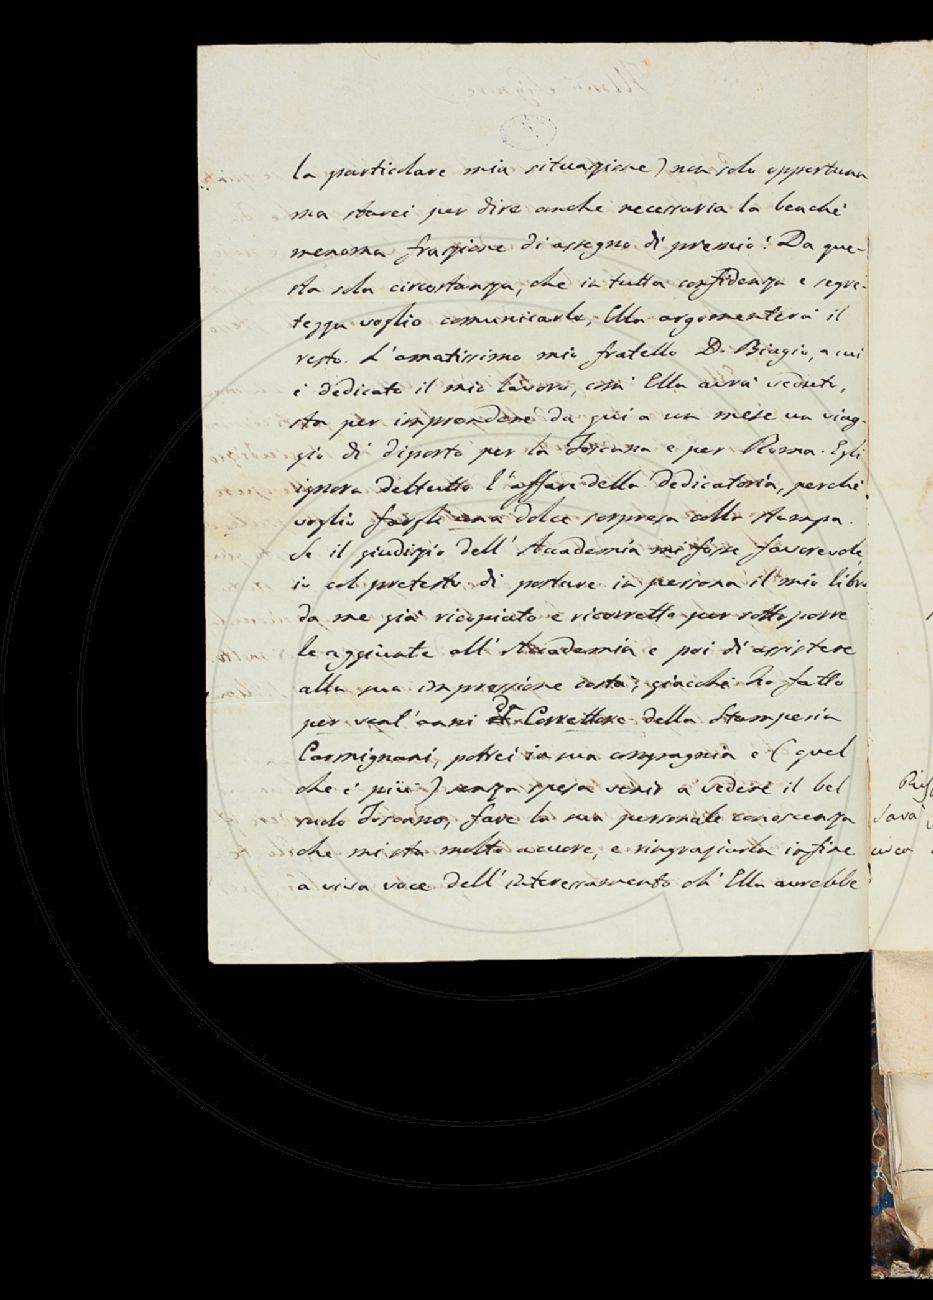 la particolare mia situazione) non solo opportuna
ma starei per dire anche necessaria la benchè
menoma frazione di assegno di premio! Da que-
sta sola circostanza, che in tutta confidenza e segre-
tezza voglio comunicarle, Ella argomenterà il
resto. L'amatissimo mio fratello D. Biagio, a cui
è dedicato il mio lavoro, com' Ella avrà veduto,
sta per imprendere da qui a un mese un viag-
gio di diporto per la Toscana e per Roma. Egli
ignora deltutto l'affare della dedicatoria, perchè
voglio fargli una dolce sorpresa colla stampa.
Se il giudizio dell' Accademia mi fosse favorevole,
io col pretesto di portare in persona il mio libro
da me già ricopiato e ricorretto per sottoporre
le aggiunte all' Accademia e poi di assistere
alla sua impressione costà; giacchè ho fatto
per vent'anni da Correttore della Stamperia
Carmignani, potrei in sua compagnia e (quel
che è più) senza spesa venir a vedere il bel
suolo Toscano, fare la sua personale conoscenza
che mi sta molto a cuore, e ringraziarla infine
a viva voce dell' interessamento ch' Ella avrebbe